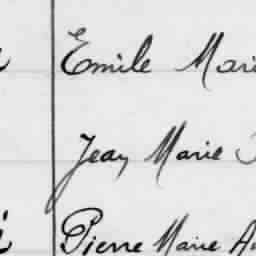 Emile Mari
Jean Marie
Pierre Marie A